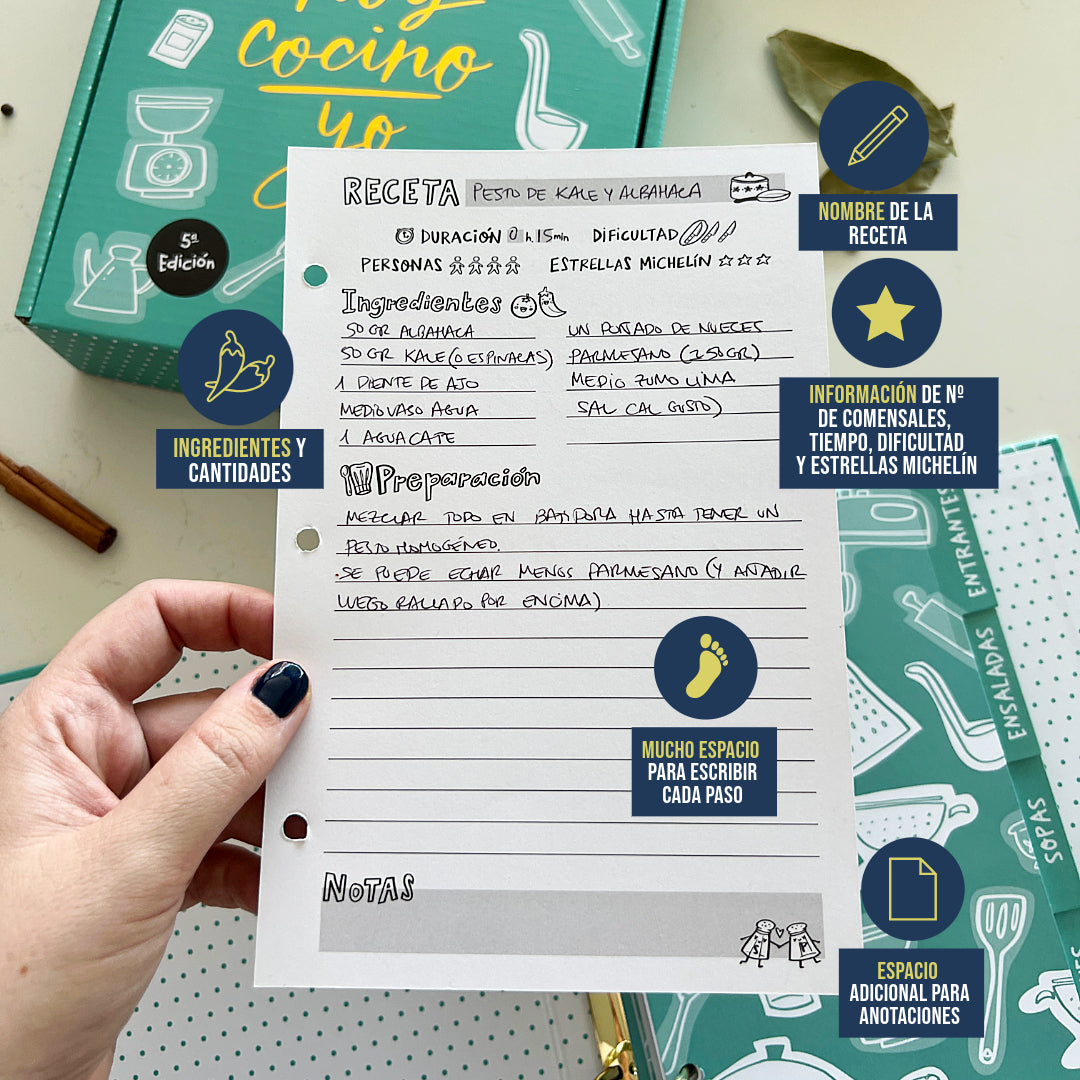 Hoy
Cocino
yo
5ª
Edición
RECETA PESTO DE KALE Y ALBAHACA
DURACIÓN 0 h. 15 min DIFICULTAD
PERSONAS ESTRELLAS MICHELÍN
Ingredientes
50 GR ALBAHACA
50 GR KALE (O ESPINACAS)
1 DIENTE DE AJO
MEDIO VASO AGUA
1 AGUACATE
UN PUÑADO DE NUECES
PARMESANO (150GR)
MEDIO ZUMO LIMA
SAL (AL GUSTO)
Preparación
MEZCLAR TODO EN BATIDORA HASTA TENER UN
PESTO HOMOGÉNEO.
·SE PUEDE ECHAR MENOS PARMESANO (Y AÑADIR
LUEGO RALLADO POR ENCIMA)
NOTAS
S P
NOMBRE DE LA
RECETA
INFORMACIÓN DE Nº
DE COMENSALES,
TIEMPO, DIFICULTAD
Y ESTRELLAS MICHELÍN
INGREDIENTES Y
CANTIDADES
MUCHO ESPACIO
PARA ESCRIBIR
CADA PASO
ESPACIO
ADICIONAL PARA
ANOTACIONES
ENTRANTES
ENSALADAS
SOPAS